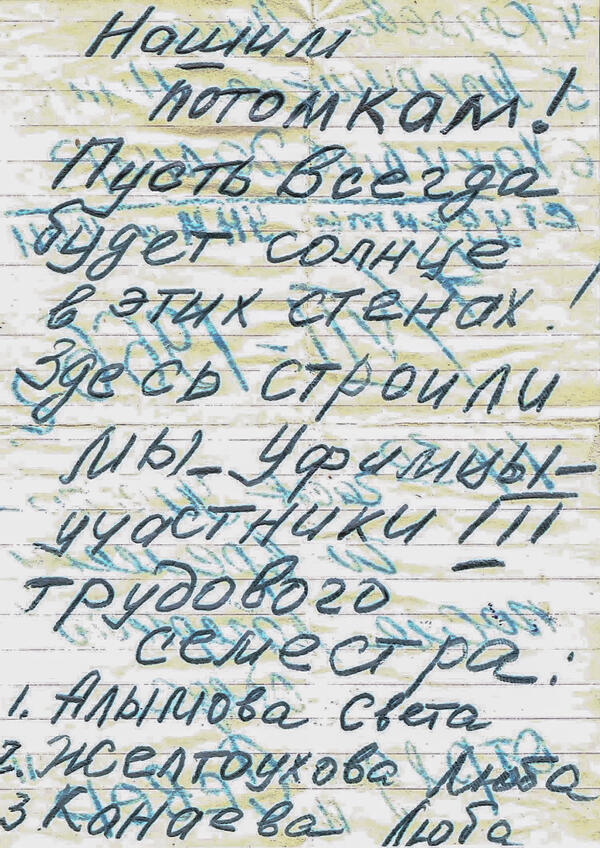 Нашим
потомкам!
Пусть всегда
будет солнце
в этих стенах!
Здесь строили
мы – Уфимцы –
участники III
трудового
семестра:
1. Алымова Света
2. Желтоухова Люба
3 Канаева Люба